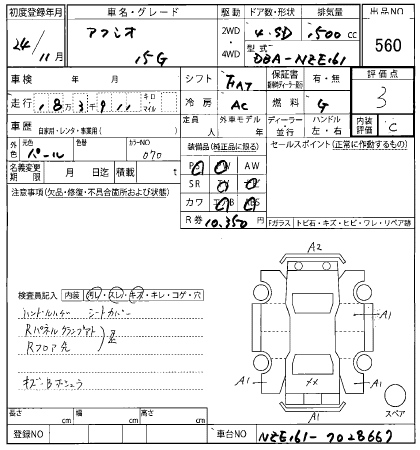 初度登録年月 車名・グレード 駆動 ドア数・形状 排気量 出品NO
24/11月 アクシオ 15G 2WD・4WD 4 SD 1500 cc 560
型式 DBA-NZE161
車検 年 月 シフト FAT 保証書 有・無 評価点 3
走行 キロ・マイル 冷房 AC 燃料 G
車歴 自家用・レンタ・事業用( ) 定員 人 外車モデル 年 ディーラー・並行 ハンドル 左・右 内装評価 C
外色 元色 パール 色替 カラーNO 070 装備品(純正品に限る) セールスポイント(正常に作動するもの)
PS PW AW
名義変更期限 月 日迄 積載 t SR TV ナビ
注意事項(欠品・修復・不具合箇所および状態) カワ エアB ABS
R券 10,350円 Fガラス トビ石・キズ・ヒビ・ワレ・リペア跡
A2
検査員記入 内装 汚レ・スレ・キズ・キレ・コゲ・穴
シートカバー
A1
A1
Rフロア
A1
A1
××
A1
スペア
長さ cm 幅 cm 高さ cm
登録NO 車台NO NZE161-7028667